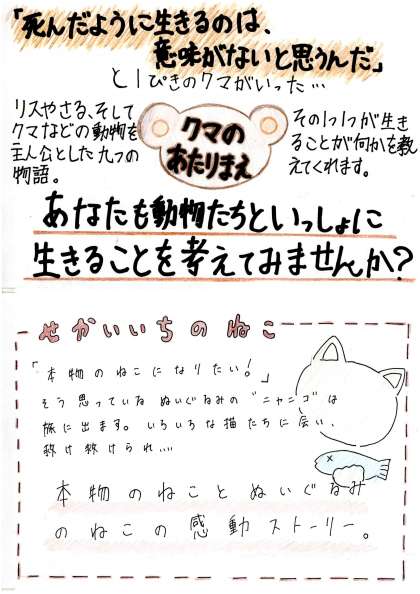 「死んだように生きるのは、
意味がないと思うんだ」
と1ぴきのクマがいった…
リスやさる、そして
クマなどの動物を
主人公とした九つの
物語。
クマの
あたりまえ
その1つ1つが生き
ることが何かを教
えてくれます。
あなたも動物たちといっしょに
生きることを考えてみませんか?
せかいいちのねこ
「本物のねこになりたい!」
そう思っている ぬいぐるみの“ニャンコ”は
旅に出ます。いろいろな猫たちに会い、
救け救けられ…
本物のねことぬいぐるみ
のねこの感動ストーリー。